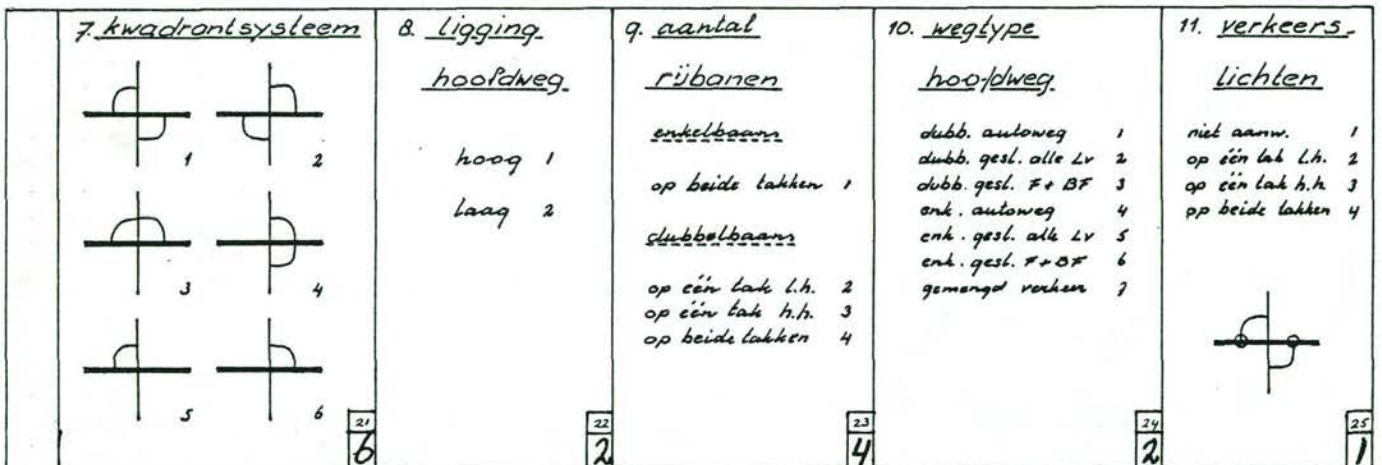 7. kwadrantsysteem
1 2
3 4
5 6
21
6
8. ligging
hoofdweg
hoog 1
laag 2
22
2
9. aantal
rijbanen
enkelbaans
op beide takken 1
dubbelbaans
op één tak l.h. 2
op één tak h.h. 3
op beide takken 4
23
4
10. wegtype
hoofdweg
dubb. autoweg 1
dubb. gesl. alle Lv 2
dubb. gesl. F + BF 3
enk. autoweg 4
enk. gesl. alle Lv 5
enk. gesl. F + BF 6
gemengd verkeer 7
24
2
11. verkeers-
lichten
niet aanw. 1
op één tak l.h. 2
op één tak h.h. 3
op beide takken 4
25
1